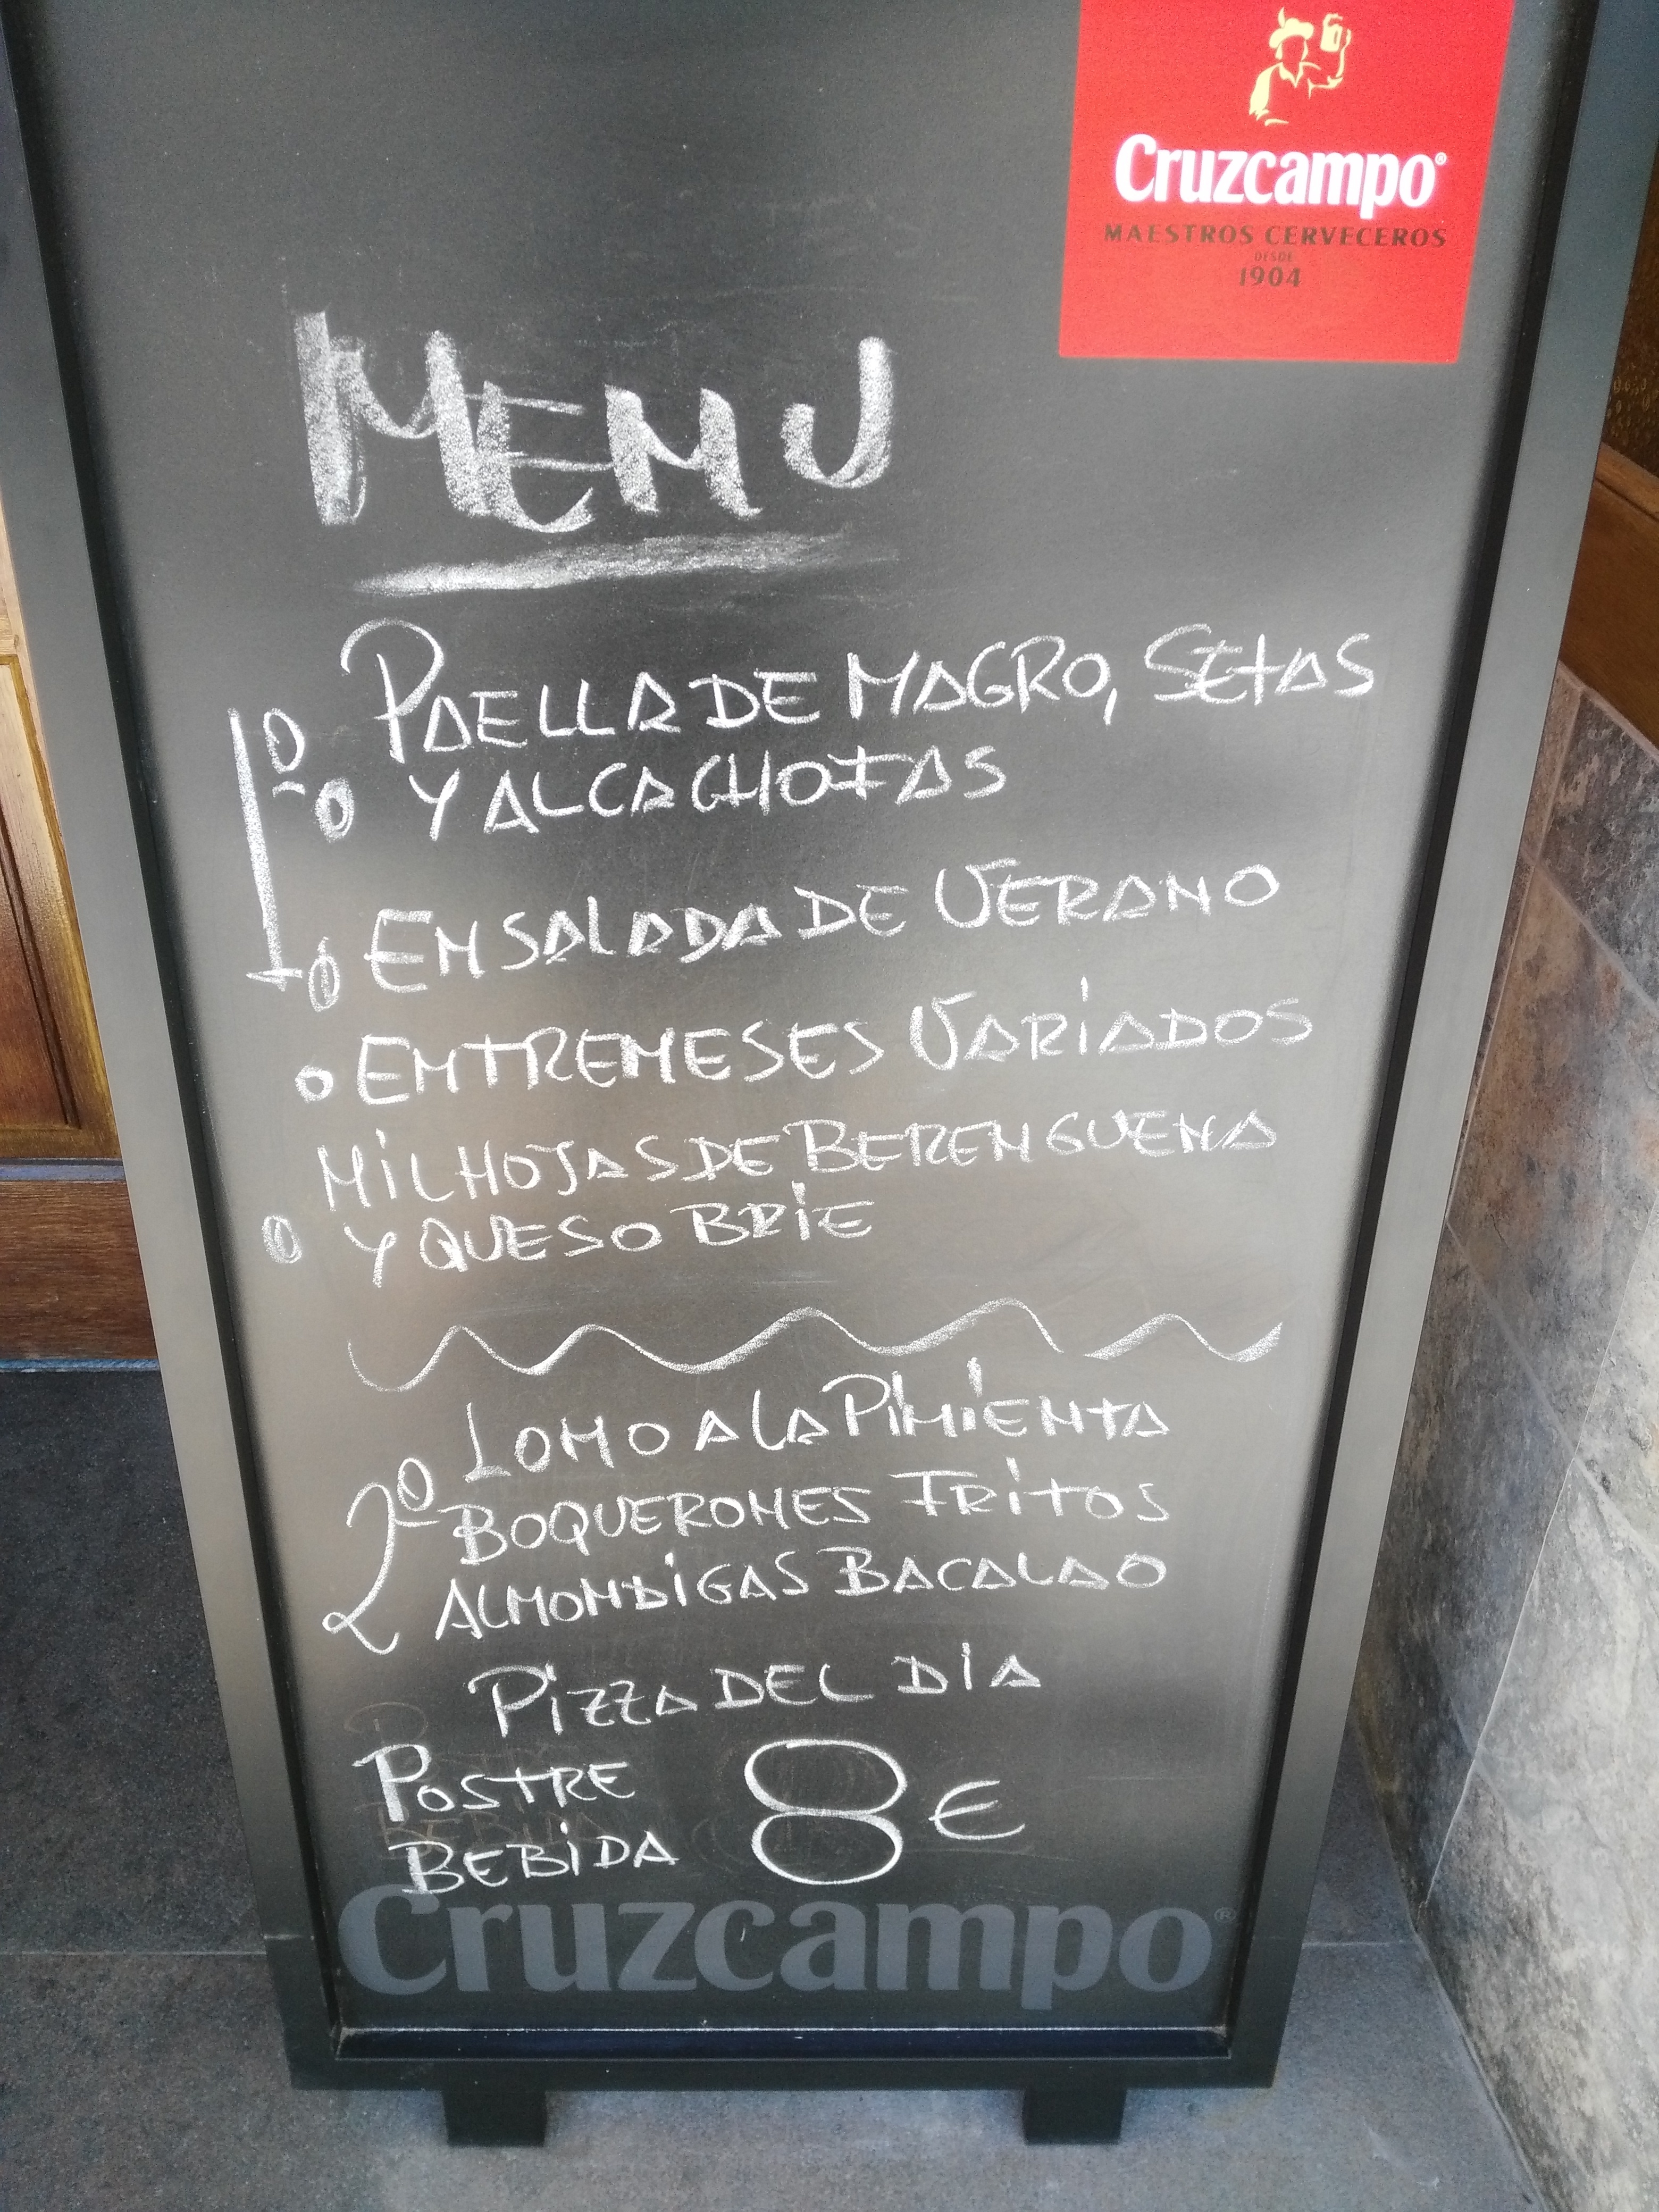 Cruzcampo®
MAESTROS CERVECEROS
DESDE
1904
MENU
1º
PAELLA DE MAGRO, SETAS
Y ALCACHOFAS
ENSALADA DE VERANO
ENTREMESES VARIADOS
MILHOJAS DE BERENGUENA
Y QUESO BRIE
2º
LOMO A LA PIMIENTA
BOQUERONES FRITOS
ALMONDIGAS BACALAO
PIZZA DEL DIA
POSTRE
BEBIDA
8€
Cruzcampo®